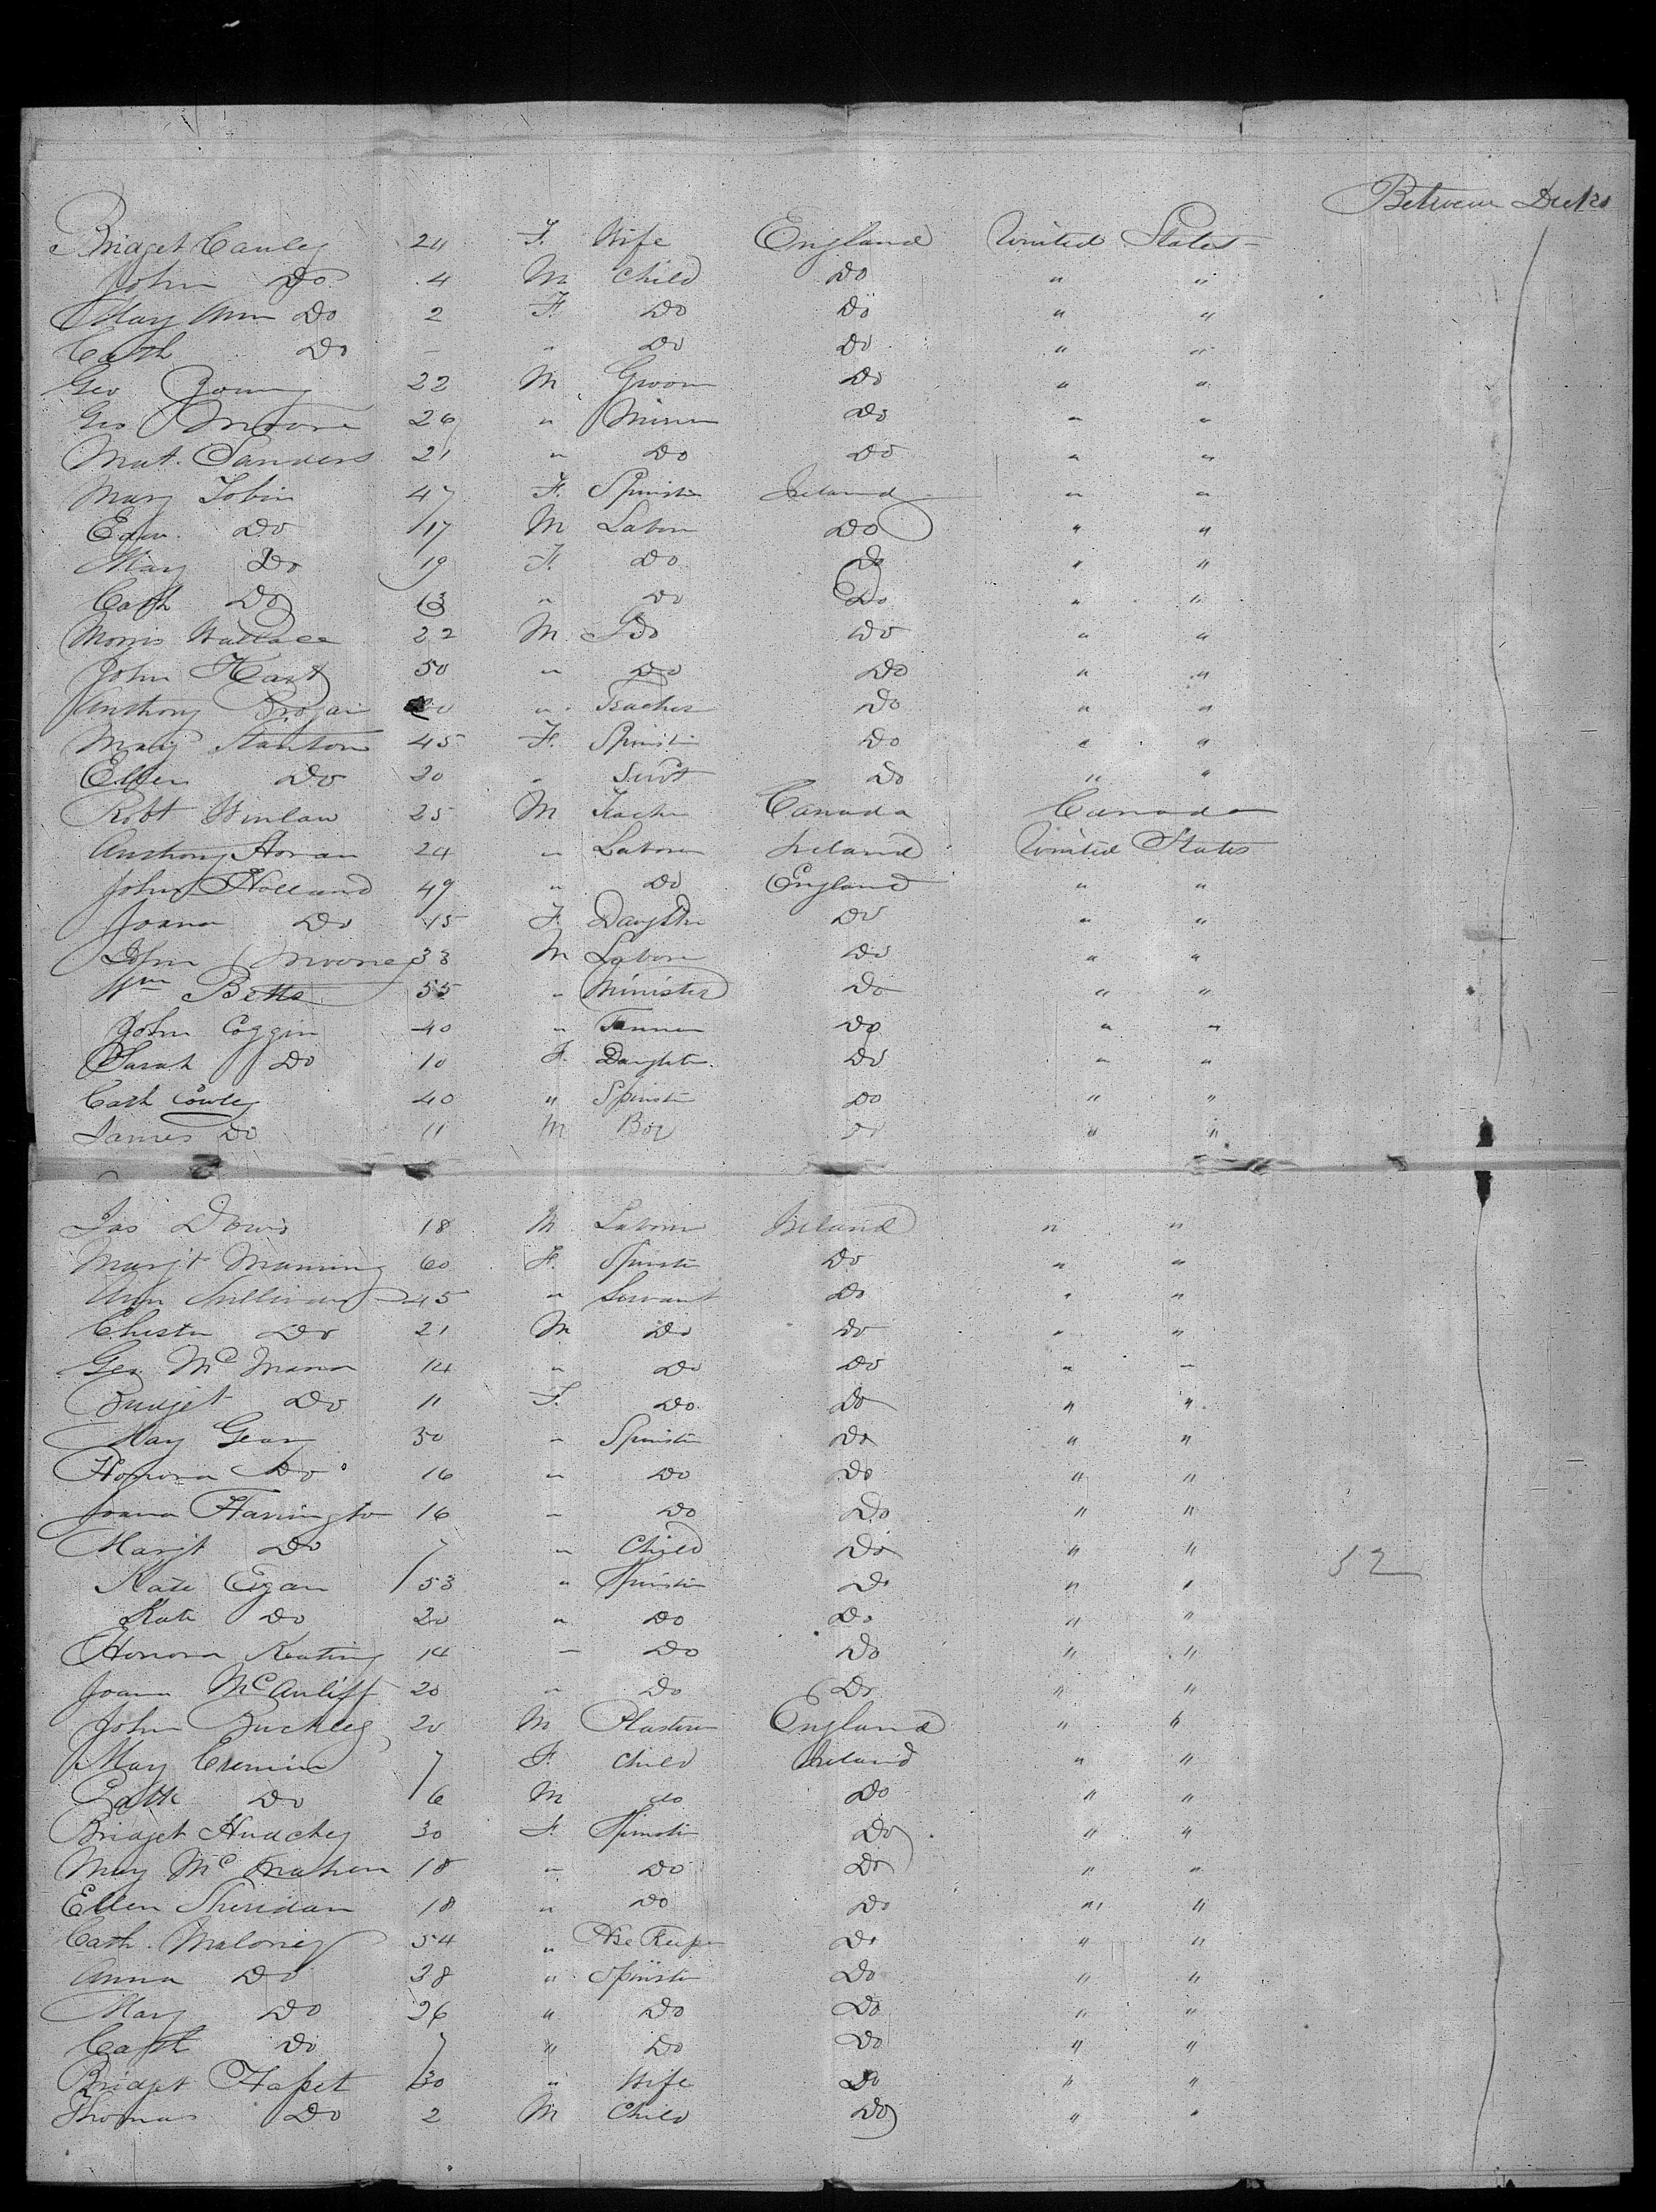 Between Decks
Bridget Cauley 24 F. Wife England United States
John Do 4 M Child Do " "
Mary Ann Do 2 F. Do Do " "
Cath Do – " Do Do " "
Geo Young 22 M Groom Do " "
Geo Moore 26 " Miner Do " "
Mat. Sanders 21 " Do Do " "
Mary Tobin 47 F. Spinster Ireland " "
Edw. Do 17 M Labor Do " "
Mary Do 19 F. Do Do " "
Cath Do 13 " Do Do " "
Morris Wallace 22 M Do Do " "
John Hart 50 " Do Do " "
Anthony Brogan " Teacher Do " "
Mary Stanton 45 F. Spinster Do " "
Ellen Do 20 " Servt Do " "
Robt Winlaw 25 M Teacher Canada Canada
Anthony Horan 24 " Laborer Ireland United States
John Holland 49 " Do England " "
Joana Do 15 F. Daughter Do " "
John Mooney 33 M Labor Do " "
Wm Betts 55 " Minister Do " "
John Coggin 40 " Do " "
Sarah Do 10 F. Daughter Do " "
Cath Cowley 40 " Spinster Do " "
James Do 11 M Boy Do " "
Jas 18 M Laborer Ireland " "
Margt Manning 60 F. Spinster Do " "
Ann Sullivan 45 " Servant Do " "
Do 21 M Do Do " "
Geo 14 " Do Do " "
Bridget Do 11 F. Do Do " "
Mary Geary 50 " Spinster Do " "
Honora Do 16 " Do Do " "
Joana Harrington 16 " Do Do " "
Margt Do 7 " Child Do " "
52
Kate Egan 53 " Spinster Do " "
Kate Do 20 " Do Do " "
Honora Keating 14 – Do Do " "
Joana McAuliff 20 " Do Do " "
John Buckley 20 M Plasterer England " "
Mary Cremin 7 F. Child Ireland " "
Do 6 M do Do " "
Bridget 30 F. Spinster Do " "
Mary McMahon 18 " Do Do " "
Ellen Sheridan 18 " Do Do " "
Cath. Maloney 54 " Hse Keeper Do " "
Anna Do 28 " Spinster Do " "
Mary Do 26 " Do Do " "
Cath Do 7 " Do Do " "
Bridget 30 " Wife Do " "
Thomas Do 2 M Child Do " "